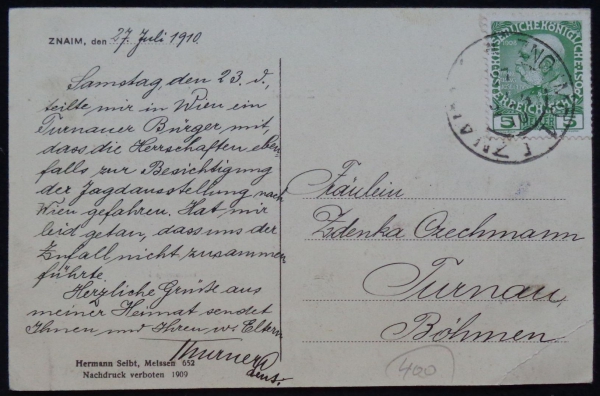 ZNAIM, den 27. Juli 1910.
Samstag, den 23. d.,
teilte mir in Wien ein
Turnauer Bürger mit,
dass die Herrschaften eben-
falls zur Besichtigung
der Jagdausstellung nach
Wien gefahren. Hat mir
leid getan, dass uns der
Zufall nicht zusammen
führte.
Herzliche Grüße aus
meiner Heimat sendet
Ihnen und Ihren w. Eltern
Hermann Seibt, Meissen 652
Nachdruck verboten 1909
1908
5 5
Fräulein
Zdenka Czechmann
Turnau,
Böhmen.
400